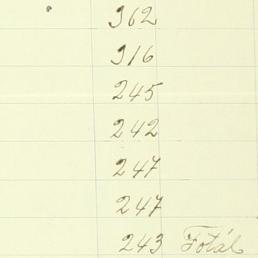 362
316
245
242
247
247
243 Total